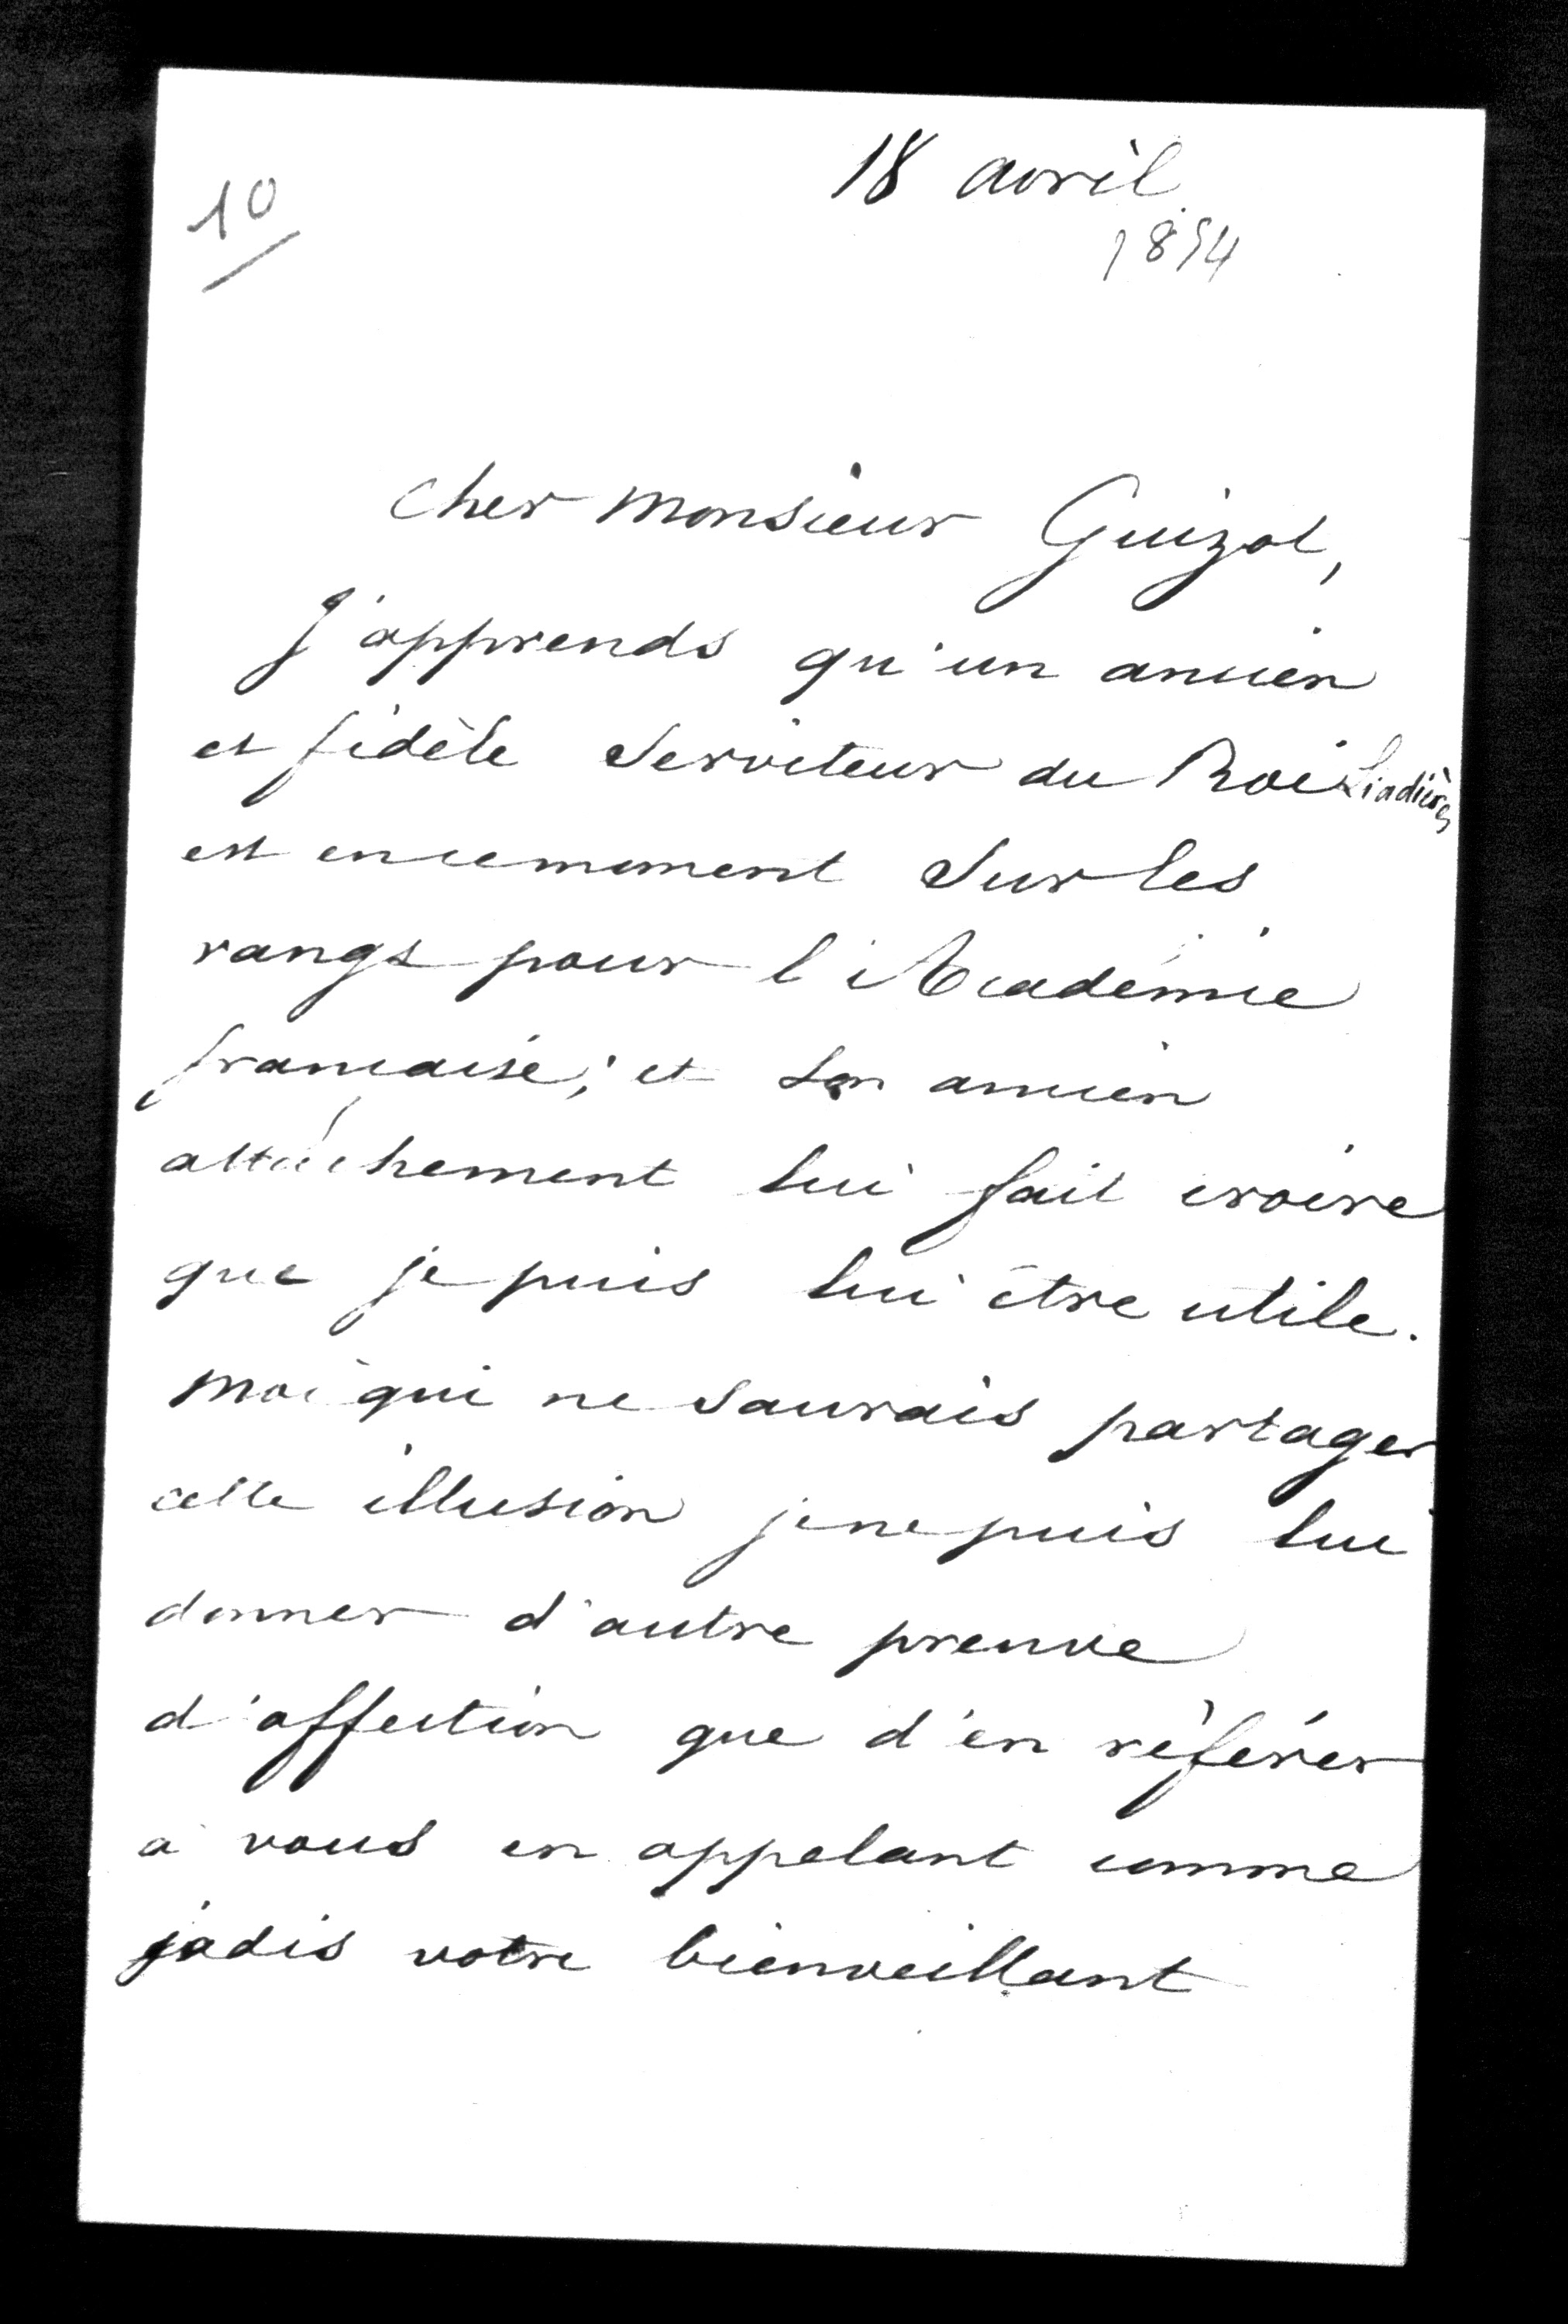 10
18 avril
1854
Cher Monsieur Guizot,
J'apprends qu'un ancien
et fidèle Serviteur du Roi Liadières
est en ce moment Sur les
rangs pour l'Académie
française; et Son ancien
attachement lui fait croire
que je puis lui être utile.
Moi qui ne Saurais partager
cette illusion je ne puis lui
donner d'autre preuve
d'affection que d'en référer
à vous en appelant comme
jadis votre bienveillant